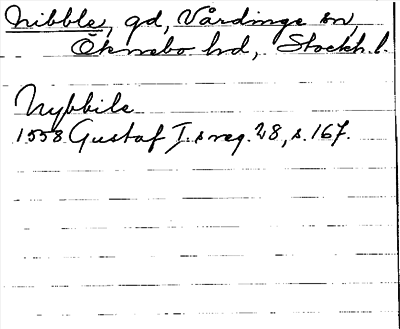 Nibble, gd, Vårdinge sn,
Öknebo hd, Stockh. l.
Nybbile
1558 Gustaf I:s reg. 28, s. 167.